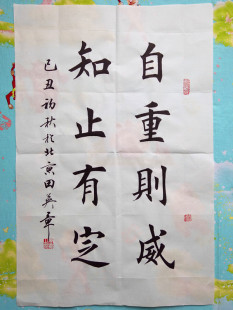 自重則威
知止有定
己丑初秋於北京田英章